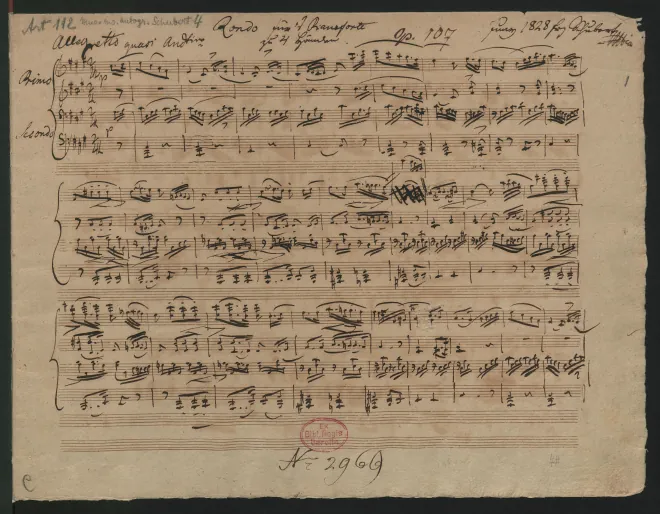 Art 112 Mus. ms. autogr. Schubert 4
Rondo für's Pianoforte
zu 4 Händen.
Op. 107
Juny 1828 Frz Schubert
Allegretto quasi Andtino
1
Primo
Secondo
p
Ex
Bibl. Regia
Berolin.
No 2969
C